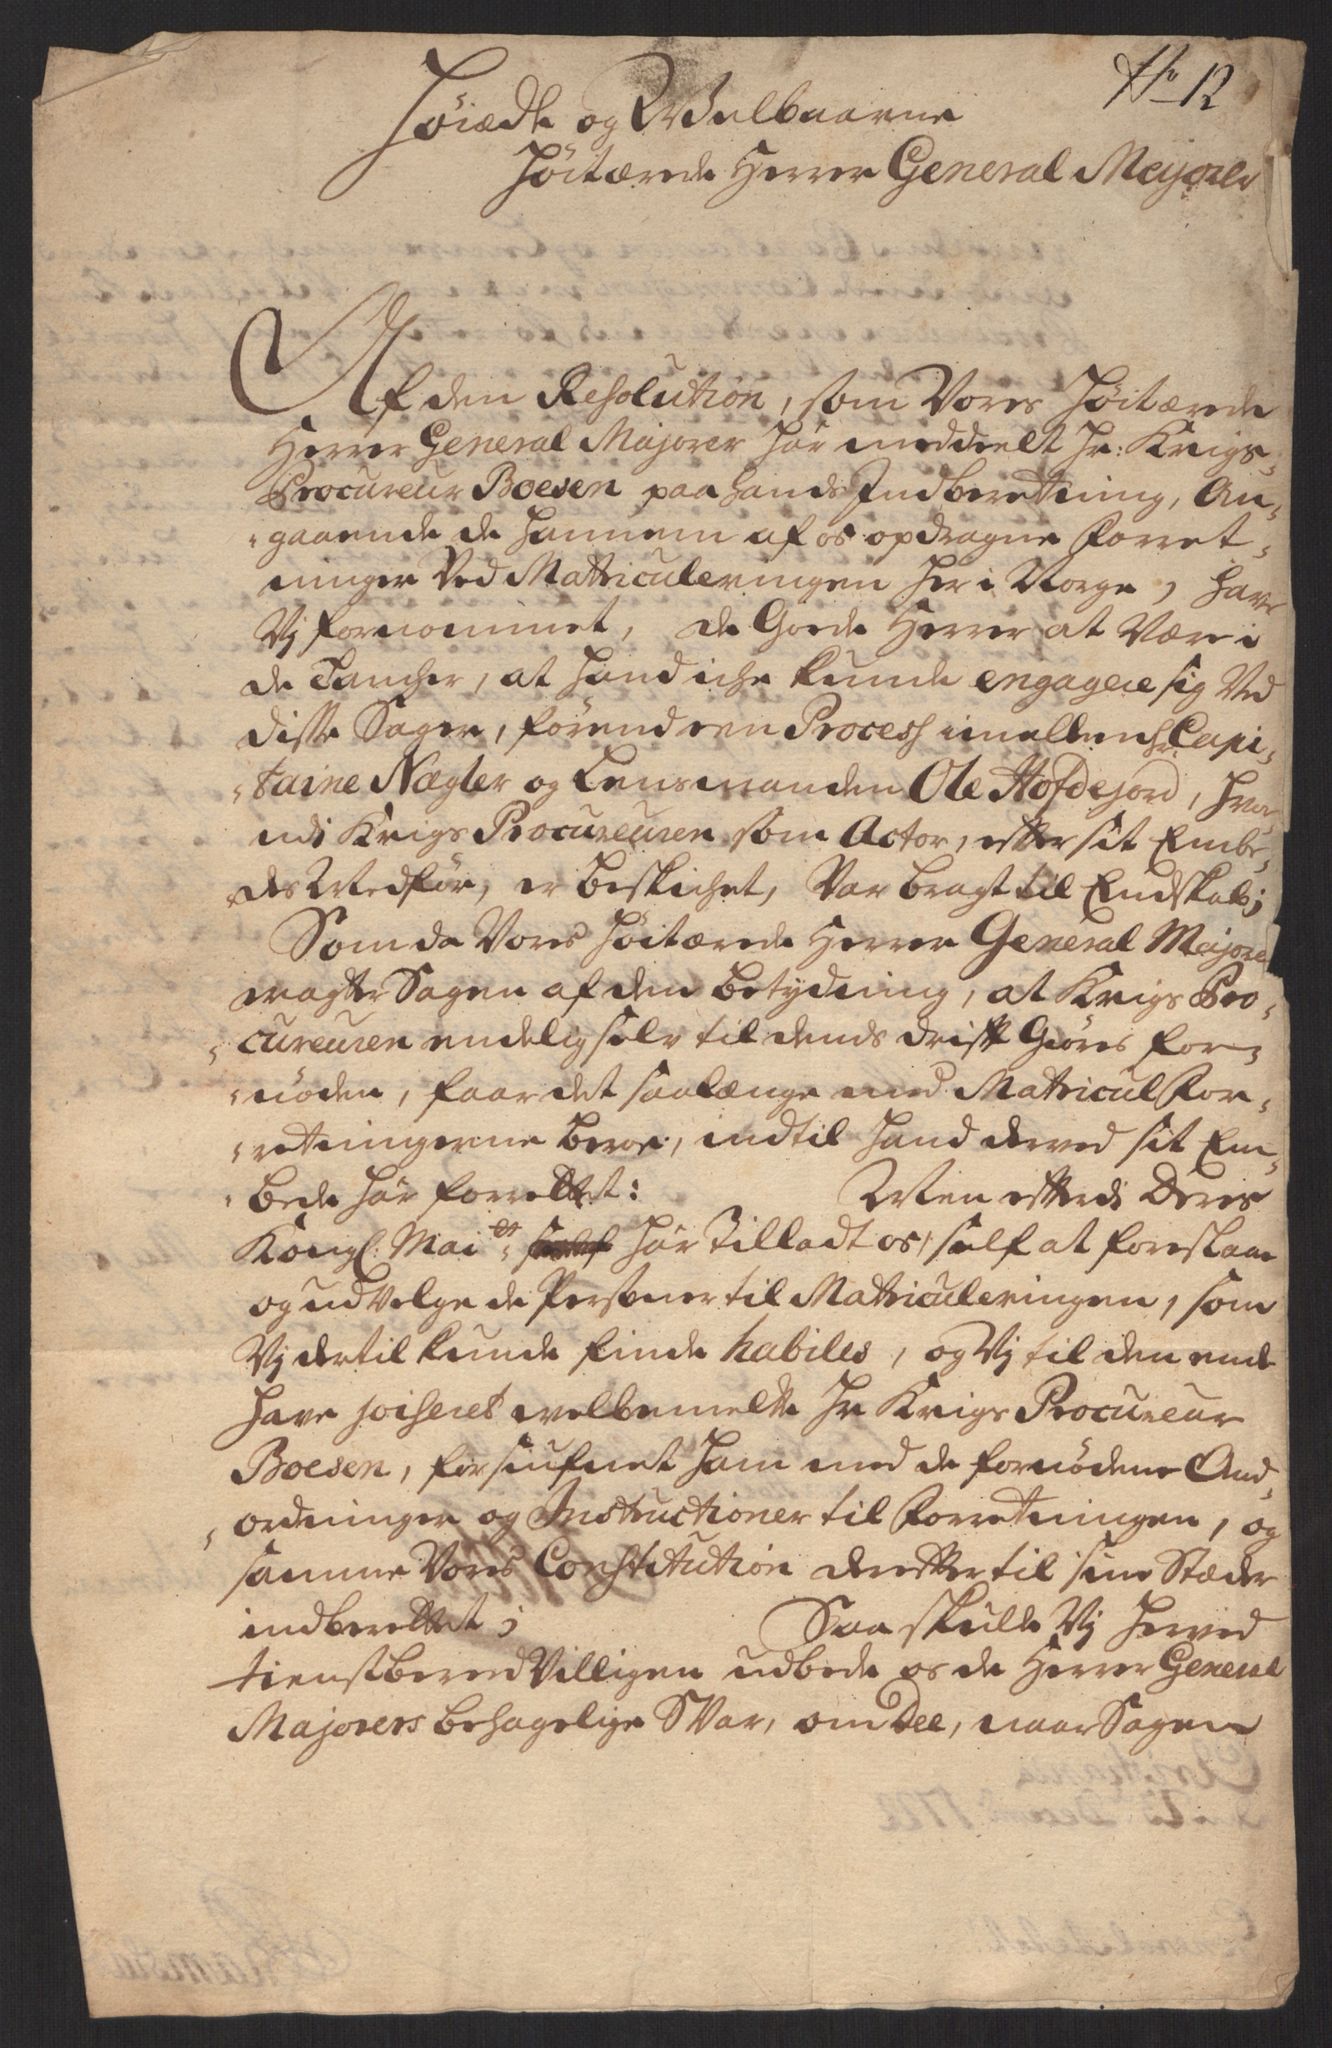 No 12
Høiædle og Welbaarne
Høitærede Herrer General Majorer
Af den Resolution, som Vores Høitærede
Herrer General Majorer har meddeelt Hr: Krigs-
Procureur Boesen paa hands Indberetning, An-
gaaende de hannem af os opdragne Forret-
ninger Ved Matriculeringen her i Norge, have
Vj fornommet, de Goede Herrer at Være i
de Tancher, at hand iche kunde engagere sig Ved
disse Sager, førend een Process imellem Hr Capi-
taine Nægler og Lensmanden Ole Hofdejord, hvor-
udi Krigs Procureuren som Actor, efter sit Embe-
des Medfør, er beskichet, Var bragt til Endskab;
Som da Vores Høitærede Herrer General Majorer
eragter Sagen af den betydning, at Krigs Pro-
cureuren endelig selv til dends drift Giøres for-
nøden, faar det saalænge med Matricul For-
retningerne beroe, indtil hand derved sit Em-
bede har forrettet: Men efterdi Deres
Kongl. Mai et har Tilladt os, self at foreslaae
og udvelge de Personer til Matriculeringen, som
Vj dertil kunde finde habiles, og Vj til den ende
have velbemelte Hr Krigs Procureur
Boesen, forsiufnet ham med de fornødene And-
ordninger og Instructioner til Forretningen, og
samme Vores Constitution derefter til sine Stæder
indberettet; Saa skulle Vj herved
tienstberedvilligen udbede os de Herrer General
Majorers behagelige Svar, om Dee, naar Sagen